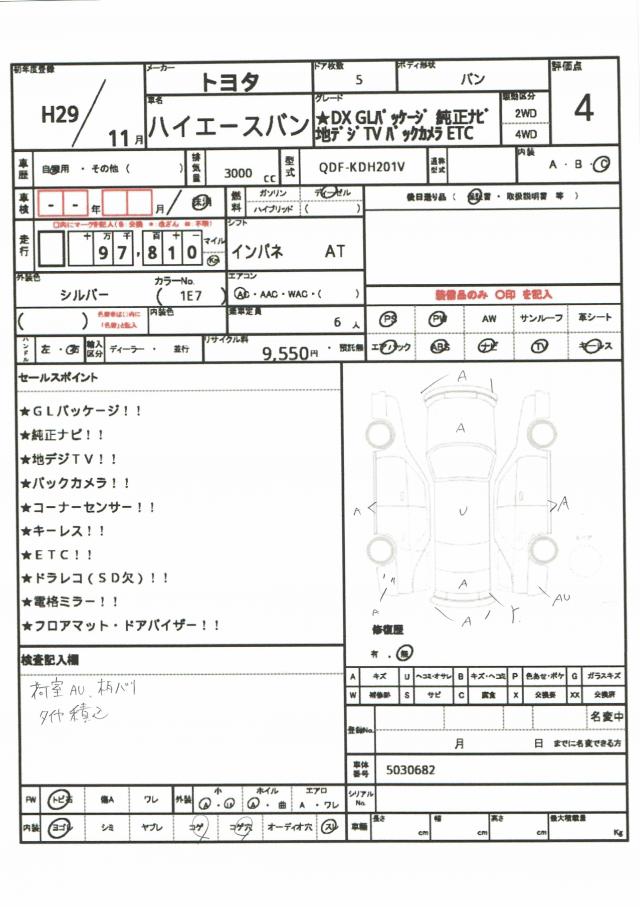 初年度登録 メーカー ドア枚数 ボディ形状 評価点
H29 / 11月 トヨタ 5 バン 4
車名 グレード 駆動区分
ハイエースバン ★DX GLパッケージ 純正ナビ 2WD
地デジTV バックカメラ ETC 4WD
車歴 自家用 ・ その他 ( ) 排気量 3000 cc 型式 QDF-KDH201V 通称型式 内装 A ・ B ・ C
車検 - - 年 月 / 抹消 燃料 ガソリン ディーゼル 後日送り品 ( 保証書 ・ 取扱説明書 等 )
ハイブリッド ( )
走行 十 万 千 百 十 一 マイル シフト
97,810 Km インパネ AT
外装色 カラーNo. エアコン
シルバー ( 1E7 ) AC ・ AAC ・ WAC ・ ( ) 装備品のみ ○印 を記入
( ) 色替車は( )内に「色替」と記入 内装色 乗車定員 6 人 PS PW AW サンルーフ 革シート
ハンドル 左 ・ 右 輸入区分 ディーラー ・ 並行 リサイクル料 9,550円 ・ 預託無 エアバック ABS ナビ TV キーレス
セールスポイント
★GLパッケージ!!
★純正ナビ!!
★地デジTV!!
★バックカメラ!!
★コーナーセンサー!!
★キーレス!!
★ETC!!
★ドラレコ(SD欠)!!
★電格ミラー!!
★フロアマット・ドアバイザー!!
A
A
A U A
A
A A AU
修復歴
有 ・ 無
検査記入欄
荷室AU、
タイヤ積込
A キズ U ヘコミ・オサレ B キズ・ヘコミ P 色あせ・ボケ G ガラスキズ
W 補修跡 S サビ C 腐食 X 交換要 XX 交換済
登録No. 名変中
月 日 までに名変できる方
車体番号 5030682
シリアルNo.
FW トビ石 傷A ワレ 外装 小 A ・ U ホイル A ・ 曲 エアロ A ・ ワレ
内装 ヨゴレ シミ ヤブレ コゲ コゲ穴 オーディオ穴 スレ
車輌 長さ cm 幅 cm 高さ cm 最大積載量 Kg